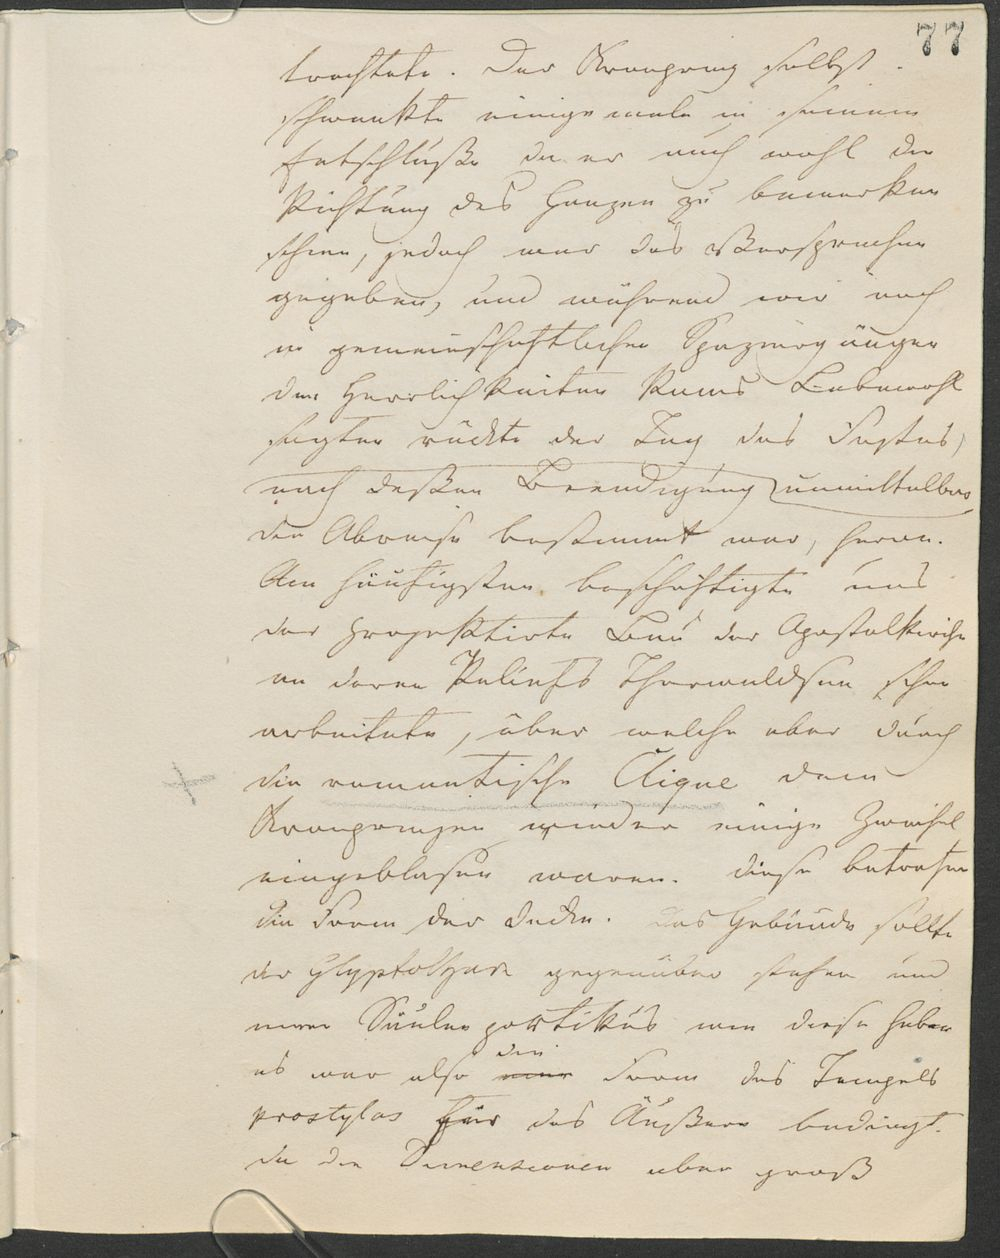 77
trachtete. Der Kronprinz selbst
schwankte einigemale in seinem
Entschluße da er auch wohl die
Richtung des Ganzen zu bemerken
schien, jedoch war das Versprechen
gegeben, und während wir noch
in gemeinschaftlichen Spaziergängen
den Herrlichkeiten Roms Lebewohl
sagten rückte der Tag des Festes,
nach deßen Beendigung unmittelbar
die Abreise bestimmt war, heran.
Am häufigsten beschäftigte uns
der projektirte Bau der Apostelkirche
an deren Reliefs Thorwaldsen schon
arbeitete, über welche aber durch
die romantische Clique dem
Kronprinzen wieder einige Zweifel
eingeblasen waren. Diese betrafen
die Form der Decke. Das Gebäude sollte
der Glyptothek gegenüber stehen und
einen Säulenportikus wie diese haben
es war also die eine Form des Tempels
prostylos für das Äußere bedingt.
da die Dimensionen aber groß